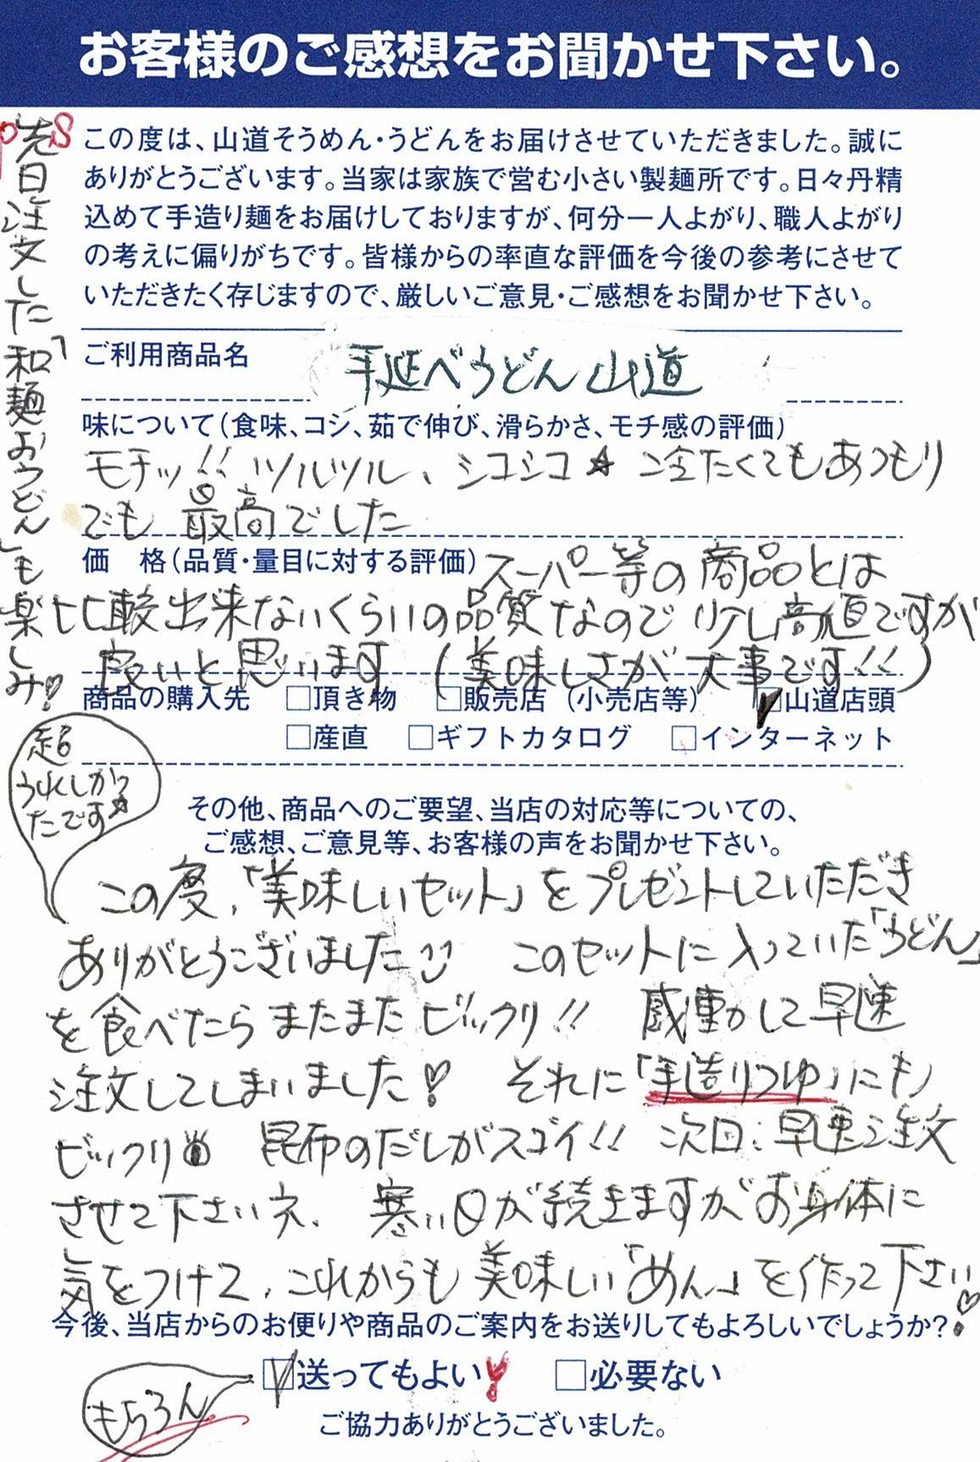 お客様のご感想をお聞かせ下さい。
この度は、山道そうめん・うどんをお届けさせていただきました。誠に
ありがとうございます。当家は家族で営む小さい製麺所です。日々丹精
込めて手造り麺をお届けしておりますが、何分一人よがり、職人よがり
の考えに偏りがちです。皆様からの率直な評価を今後の参考にさせて
いただきたく存じますので、厳しいご意見・ご感想をお聞かせ下さい。
ご利用商品名 手延べうどん山道
味について(食味、コシ、茹で伸び、滑らかさ、モチ感の評価)
モチッ!! ツルツル、シコシコ☆ 冷たくてもあつもり
でも最高でした
価 格(品質・量目に対する評価) スーパー等の商品とは
比較出来ないくらいの品質なので少し高値ですが
良いと思います(美味しさが大事です!!)
商品の購入先 □頂き物 □販売店(小売店等) ☑山道店頭
□産直 □ギフトカタログ □インターネット
その他、商品へのご要望、当店の対応等についての、
ご感想、ご意見等、お客様の声をお聞かせ下さい。
超
うれしかっ
たです☆
この度、「美味しいセット」をプレゼントしていただき
ありがとうございました このセットに入っていた「うどん」
を食べたらまたまたビックリ!! 感動して早速
注文してしまいました♡ それに「手造りつゆ」にも
ビックリ 昆布のだしがスゴイ!! 次回、早速注文
させて下さいネ、寒い日が続きますがお身体に
気をつけて、これからも美味しい「めん」を作って下さい♡
今後、当店からのお便りや商品のご案内をお送りしてもよろしいでしょうか?
☑送ってもよい! □必要ない
もちろん
ご協力ありがとうございました。
PS 先日注文した「和麺おうどん」も楽しみ♡